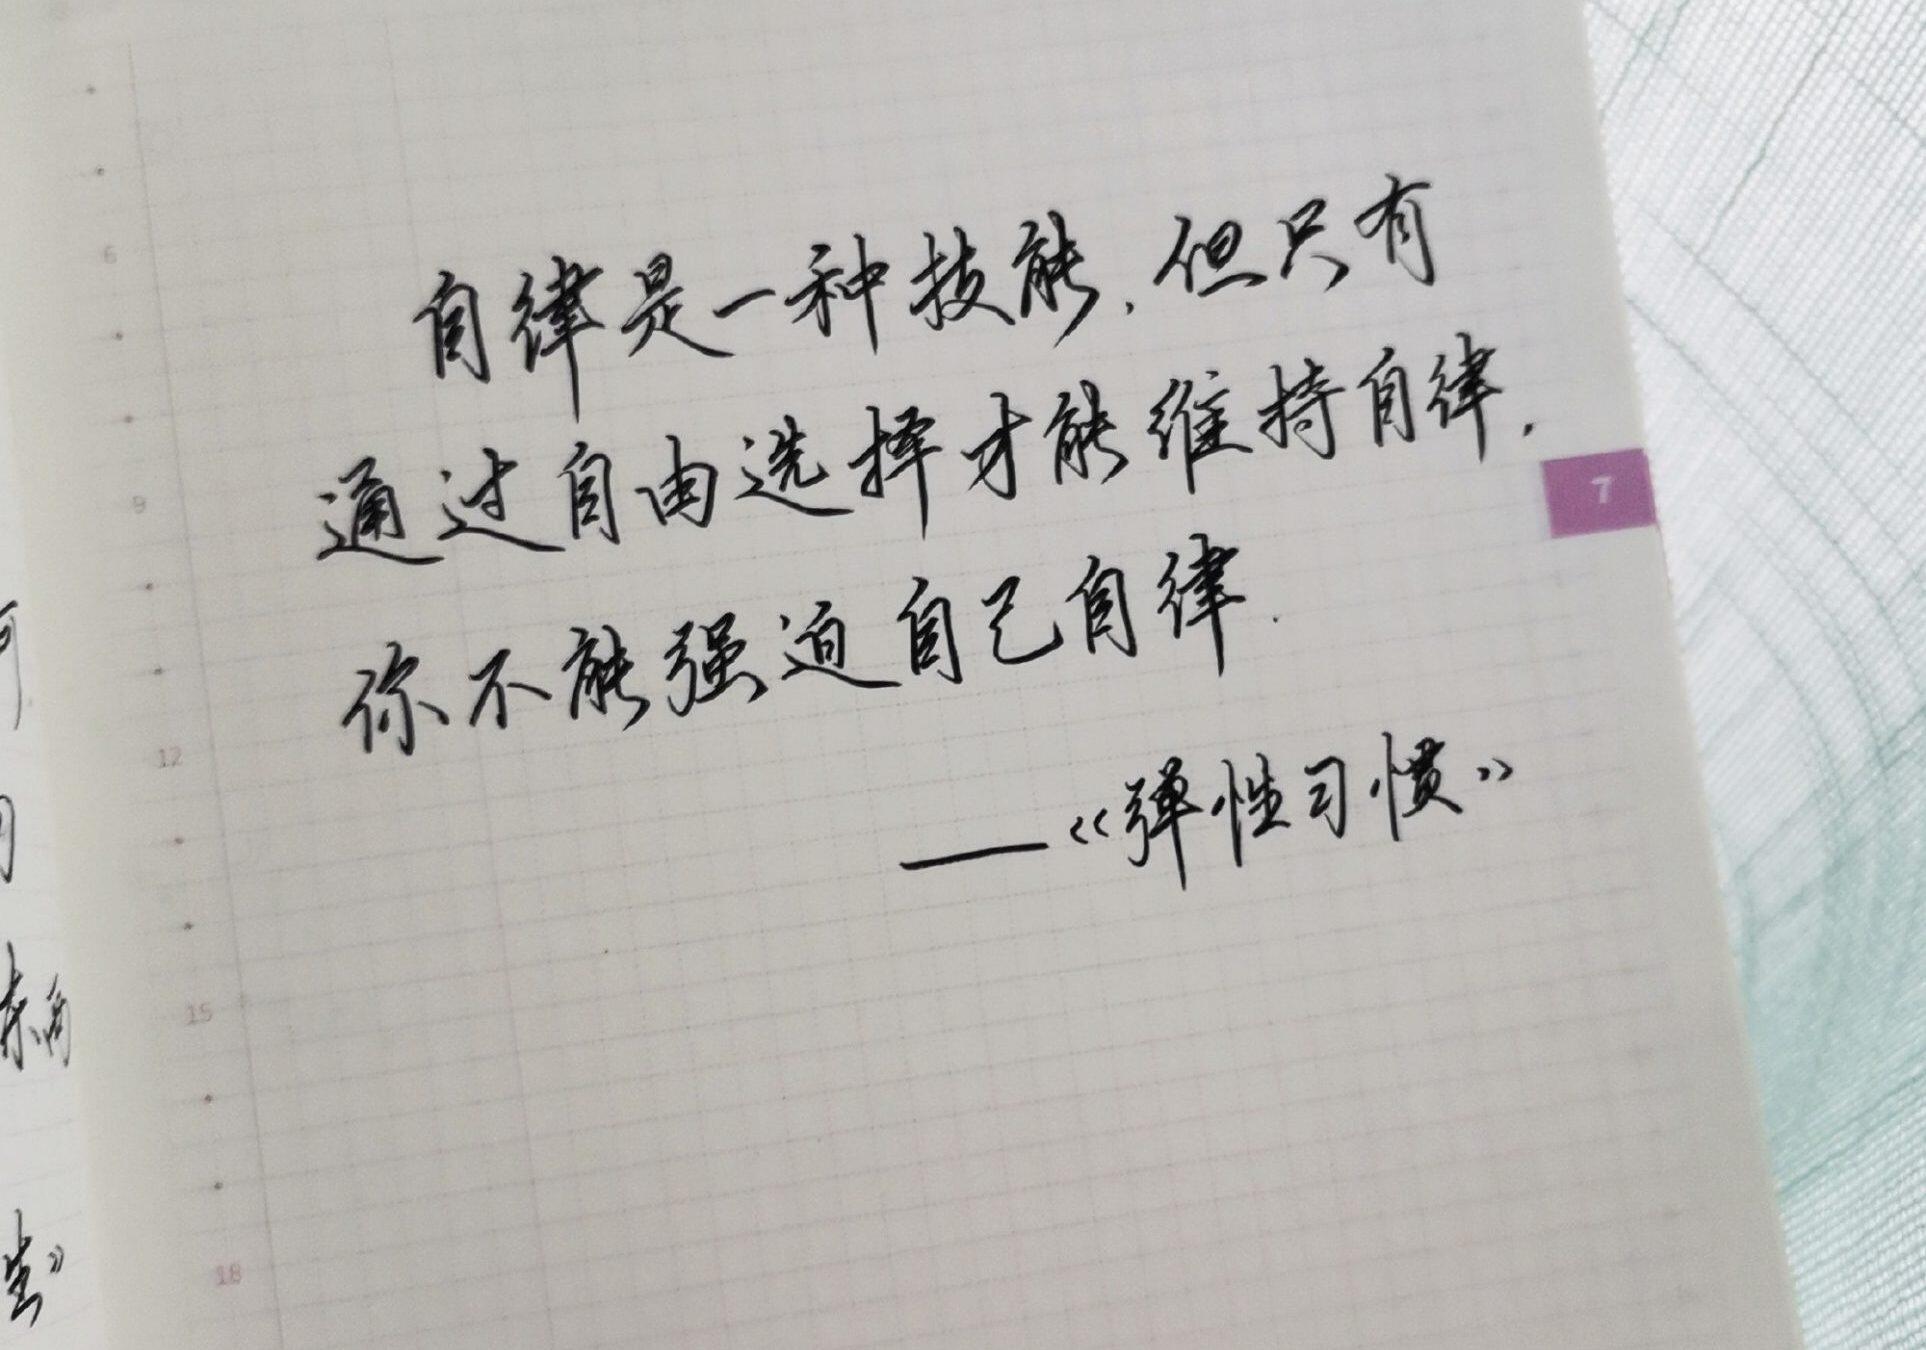 6
自律是一种技能,但只有
通过自由选择才能维持自律,
9
7
你不能强迫自己自律.
12
——《弹性习惯》
15
18